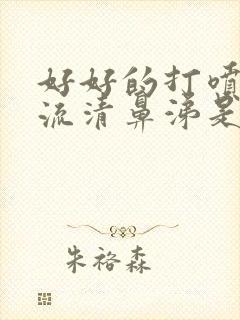 好好的打喷
流清鼻涕是
朱裕森